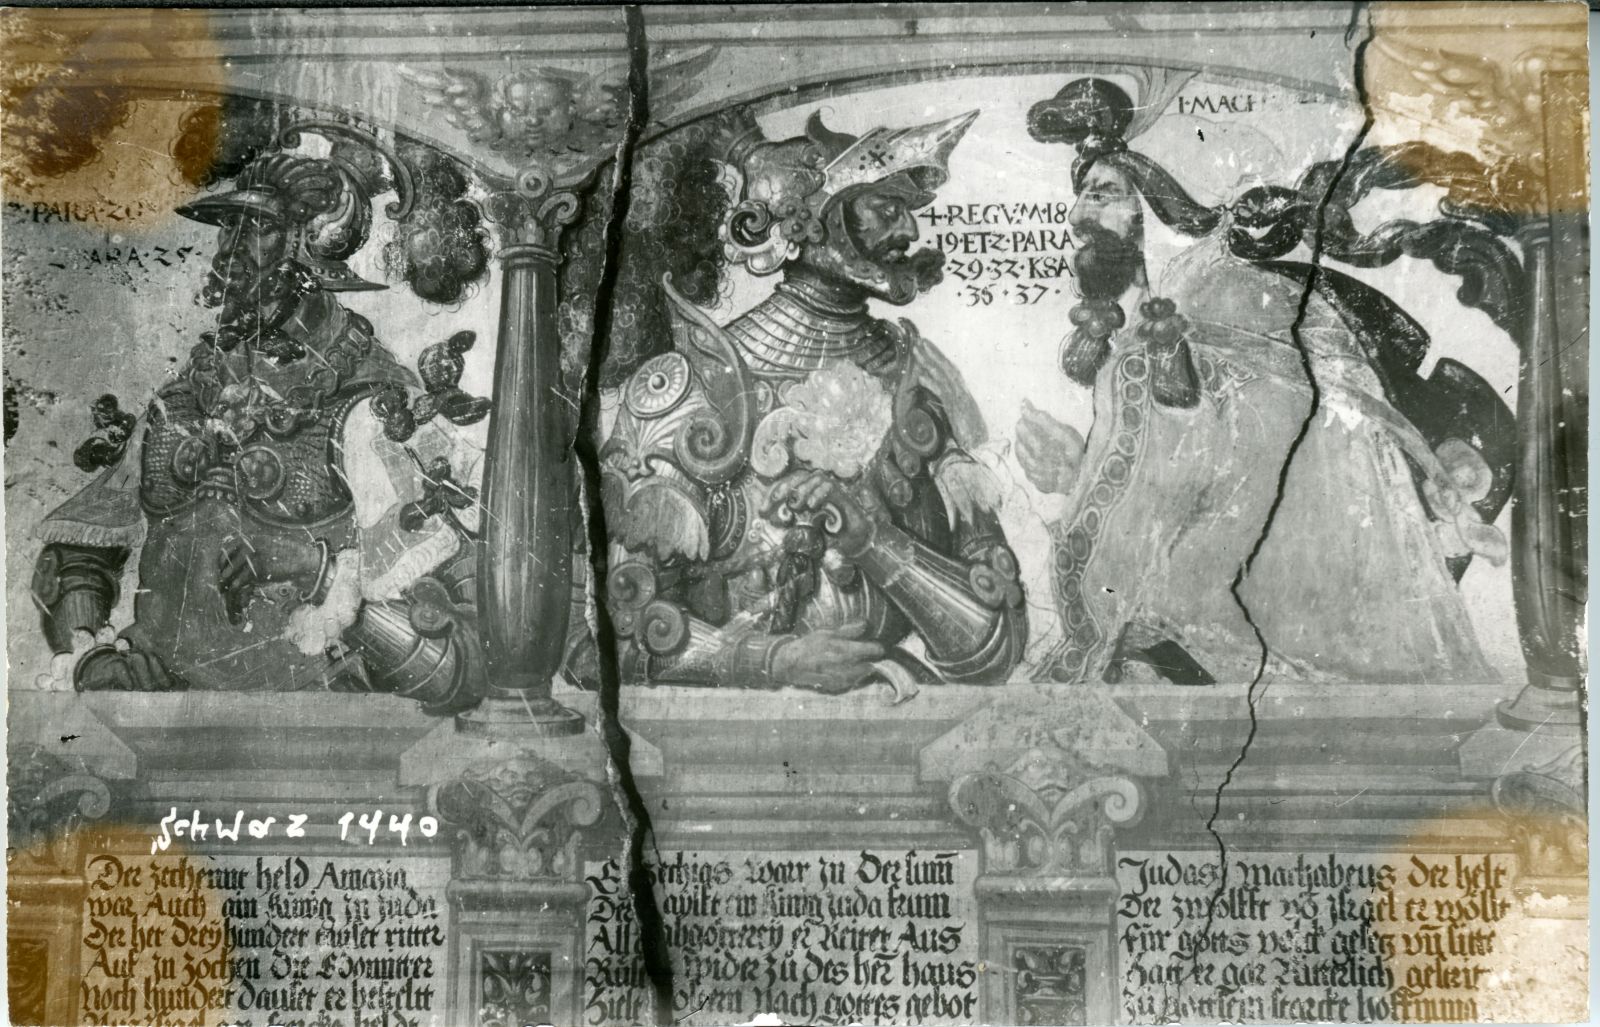 PARA·20
PARA·25
4·REGVM·18
·19·ET·2·PARA
·29·32·KSA
·36·37·
I·MACH
Schwaz 1440
Der zechennt held Amazia
war Auch ain kunig In Juda
Der het dreyhundert tauset ritter
Auf In zochen die Edomitter
Noch hundert dauset er bestellt
Ezechias warr In der sum
Der ain kinig Juda frum
All abgotterey er Reitet Aus
wider zů des her haus
Zielt nach gottes gebot
Judas machabeus der helt
Der zwolfft vo Israel er wöllt
für gotts volck gesetz vn sitte
hatt er gar Ritterlich
zu starcke hoffnung